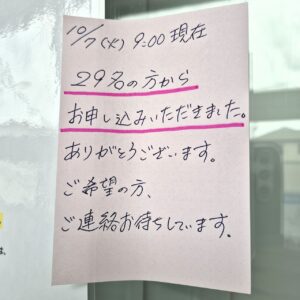 10/7(火) 9:00 現在
29名の方から
お申し込みいただきました。
ありがとうございます。
ご希望の方、
ご連絡お待ちしています。
は、